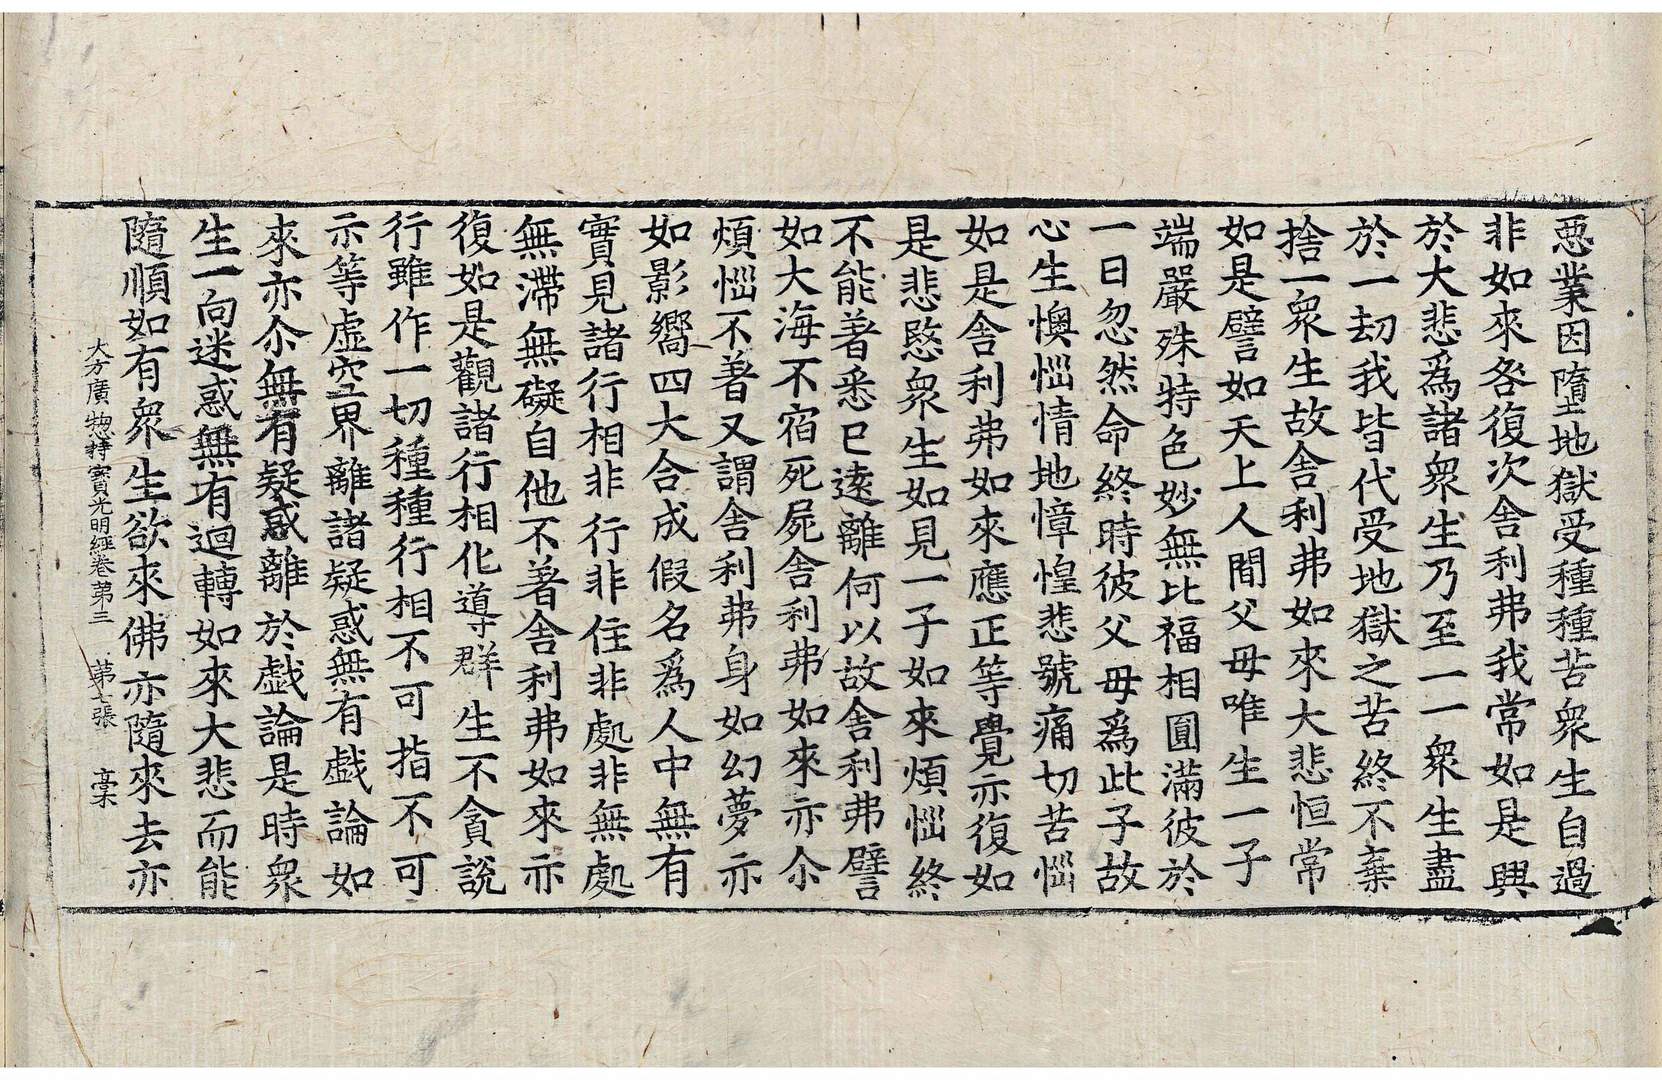 惡業因墮地獄受種種苦衆生自過
非如來咎復次舍利弗我常如是興
於大悲爲諸衆生乃至一一衆生盡
於一劫我皆代受地獄之苦終不棄
捨一衆生故舍利弗如來大悲恒常
如是譬如天上人間父母唯生一子
端嚴殊特色妙無比福相圓滿彼於
一日忽然命終時彼父母爲此子故
心生懊惱情地慞惶悲號痛切苦惱
如是舍利弗如來應正等覺亦復如
是悲愍衆生如見一子如來煩惱終
不能著悉已遠離何以故舍利弗譬
如大海不宿死屍舍利弗如來亦尒
煩惱不著又謂舍利弗身如幻夢亦
如影嚮四大合成假名爲人中無有
實見諸行相非行非住非處非無處
無滯無礙自他不著舍利弗如來亦
復如是觀諸行相化導群生不貪說
行雖作一切種種行相不可指不可
示等虛空界離諸疑惑無有戲論如
來亦尒無有疑惑離於戲論是時衆
生一向迷惑無有迴轉如來大悲而能
隨順如有衆生欲來佛亦隨來去亦
大方廣惣持寶光明經卷第三 第七張 槀